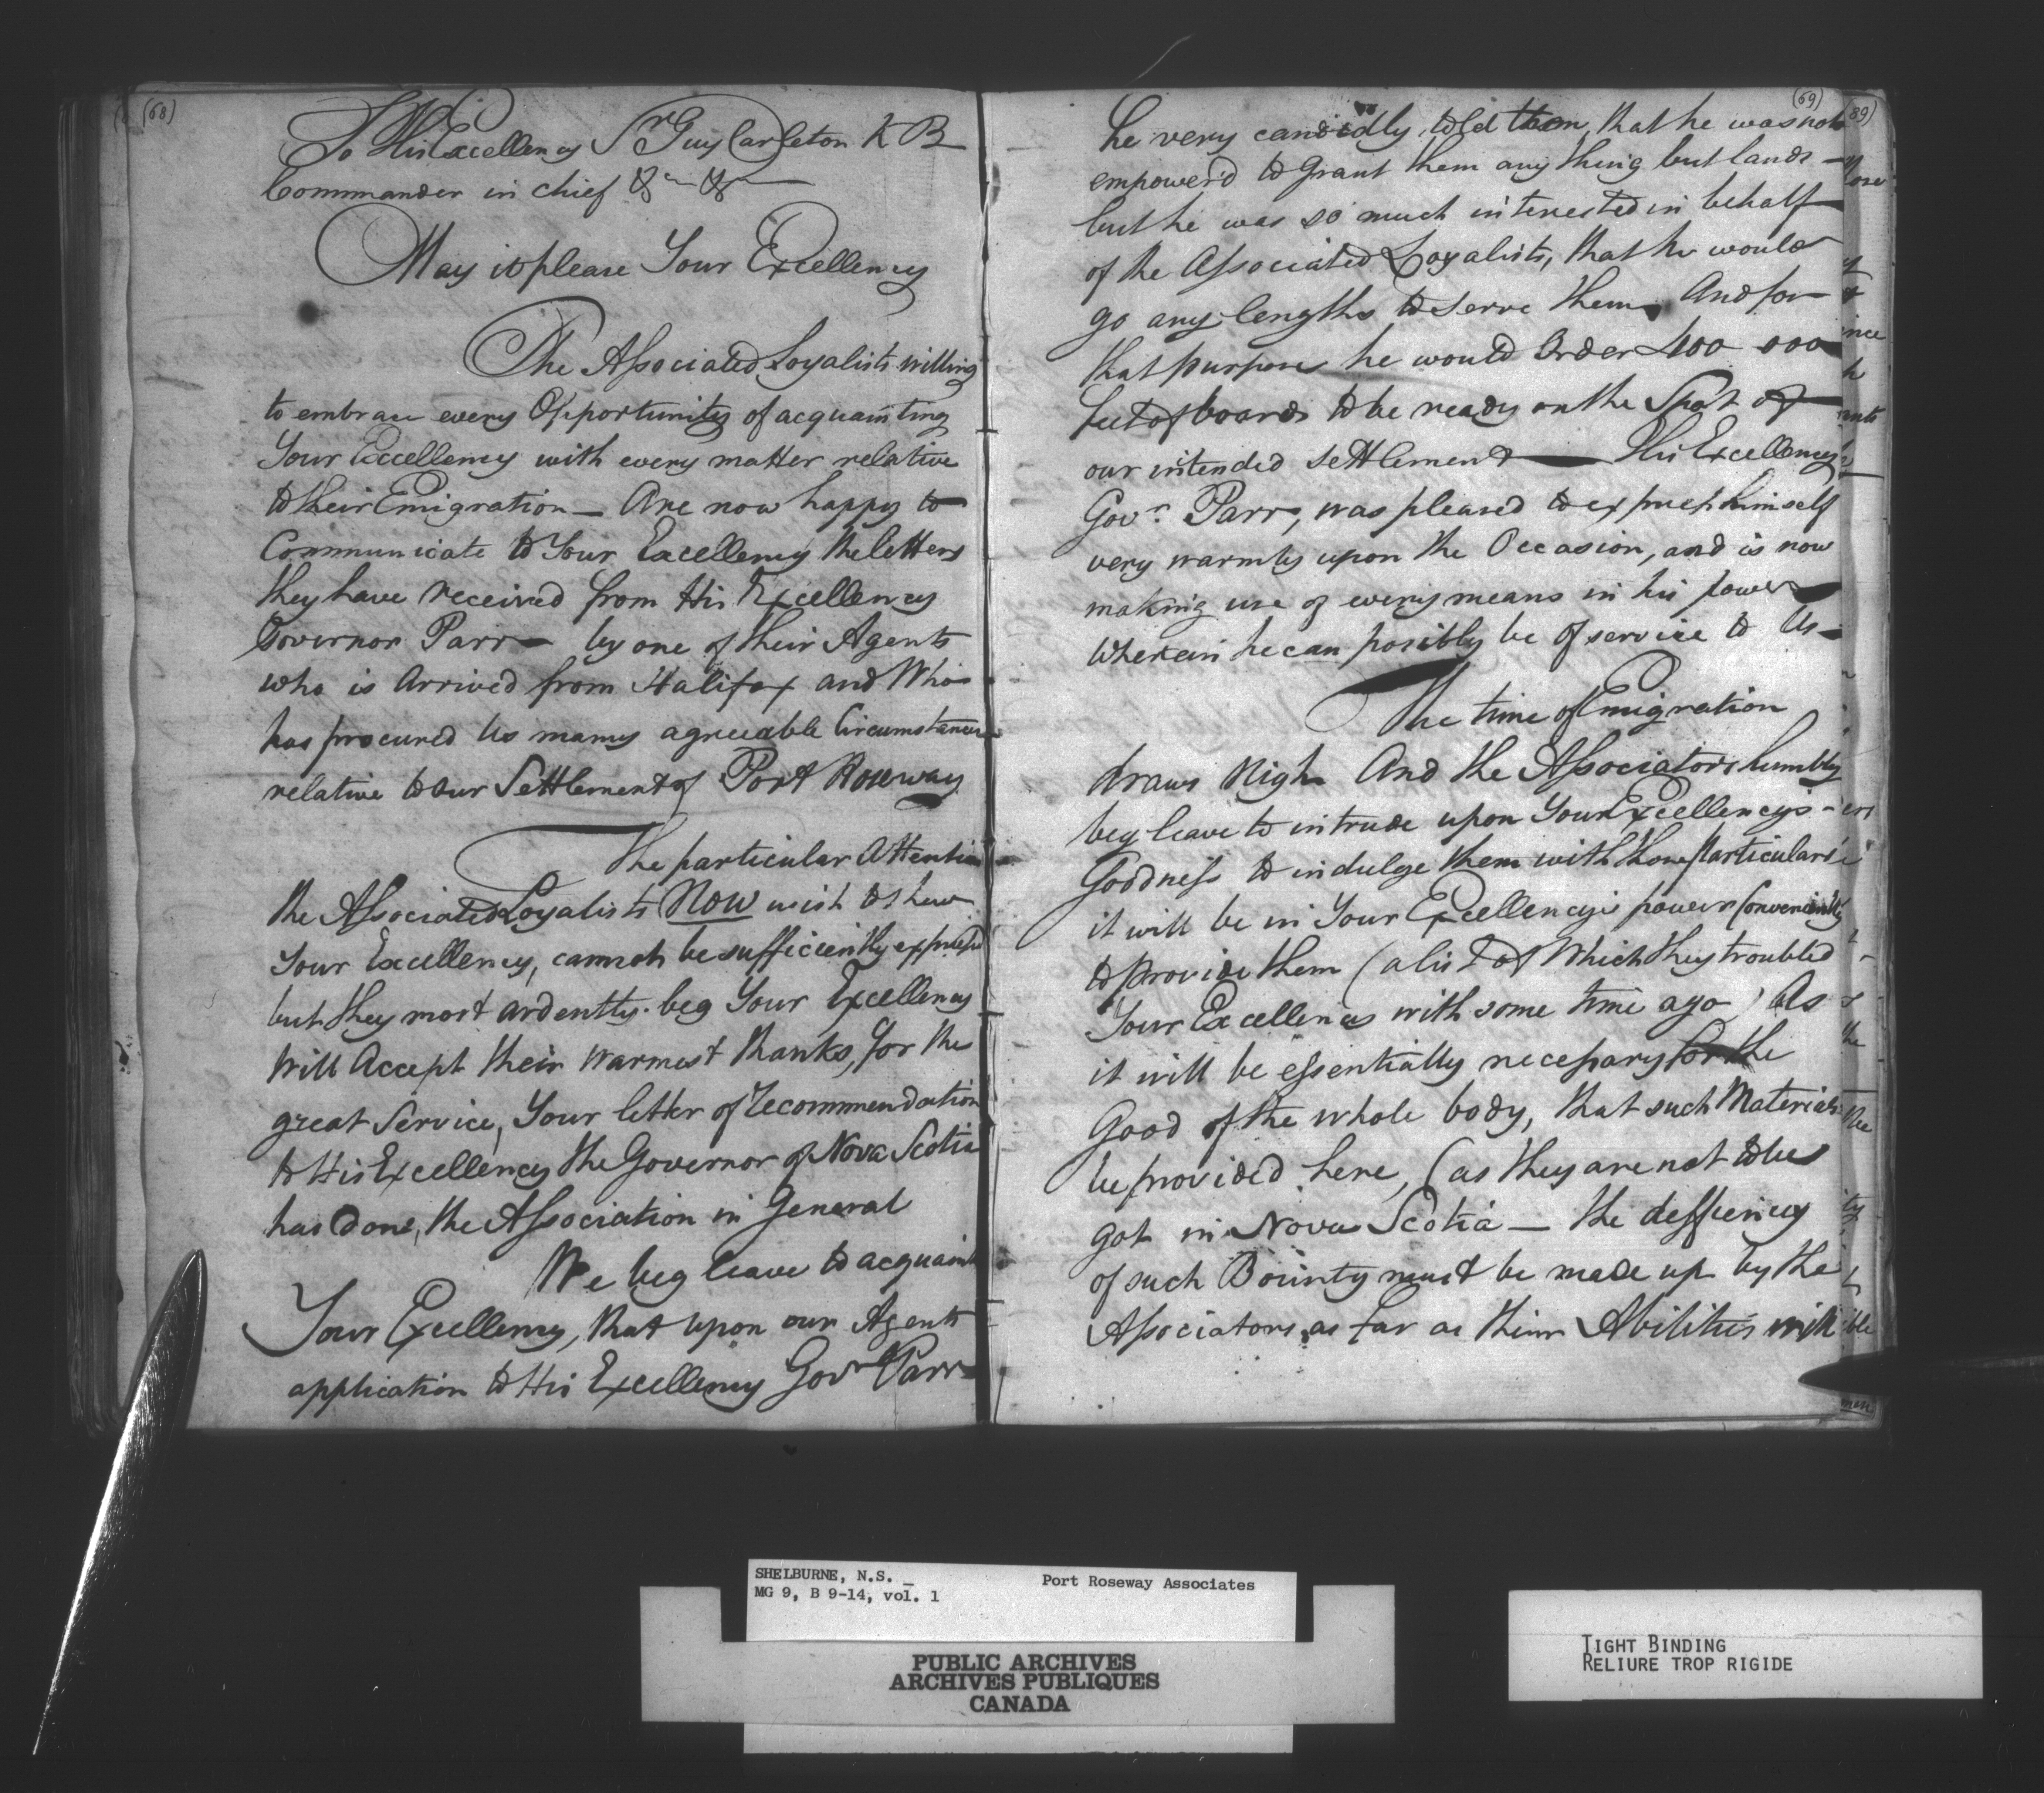 (68)
To His Excellency Sr Guy Carleton K B
Commander in chief &c &c
May it please Your Excellency
The Associated Loyalists willing
to embrace every Opportunity of acquainting
Your Excellency with every matter relative
to their Emigration — Are now happy to
Communicate to Your Excellency the letters
they have received from His Excellency
Governor Parr — by one of their Agents
who is Arrived from Halifax and Who
has procured Us many agreeable Circumstances
relative to our Settlement of Port Roseway
The particular Attention
the Associated Loyalists NOW wish to shew
Your Excellency, cannot be sufficiently express'd
but they most ardently beg Your Excellency
Will Accept their warmest thanks, for the
great Service, Your letter of Recommendation
to His Excellency the Governor of Nova Scotia
has done, the Association in General
We beg leave to acquaint
Your Excellency, that upon our Agents
application to His Excellency Govr Parr
(69)
he very candidly, told them, that he was not
empower'd to grant them any thing but lands —
but he was so much interested in behalf
of the Associated Loyalists, that he would
go any lengths to serve them, And for
that purpose he would Order 400 000
feet of boards to be ready on the Spot of
our intended settlement — His Excellency
Govr. Parr, was pleased to express himself
very warmly upon the Occasion, and is now
making use of every means in his power
Wherein he can posibly be of service to Us —
The time of Emigration
draws Nigh And the Associators humbly
beg leave to intrude upon Your Excellencys
Goodness to indulge them with those particulars
it will be in Your Excellencys power Conveniently
to provide them (a list of Which they troubled
Your Excellency with some time ago) As
it will be essentially necessary for the
Good of the whole body, that such Materials
be provided here, (as they are not to be
got in Nova Scotia — the defficiency
of such Bounty must be made up by the
Associators as far as their Abilities will
(89)
SHELBURNE, N.S. _
MG 9, B 9-14, vol. 1
Port Roseway Associates
PUBLIC ARCHIVES
ARCHIVES PUBLIQUES
CANADA
TIGHT BINDING
RELIURE TROP RIGIDE